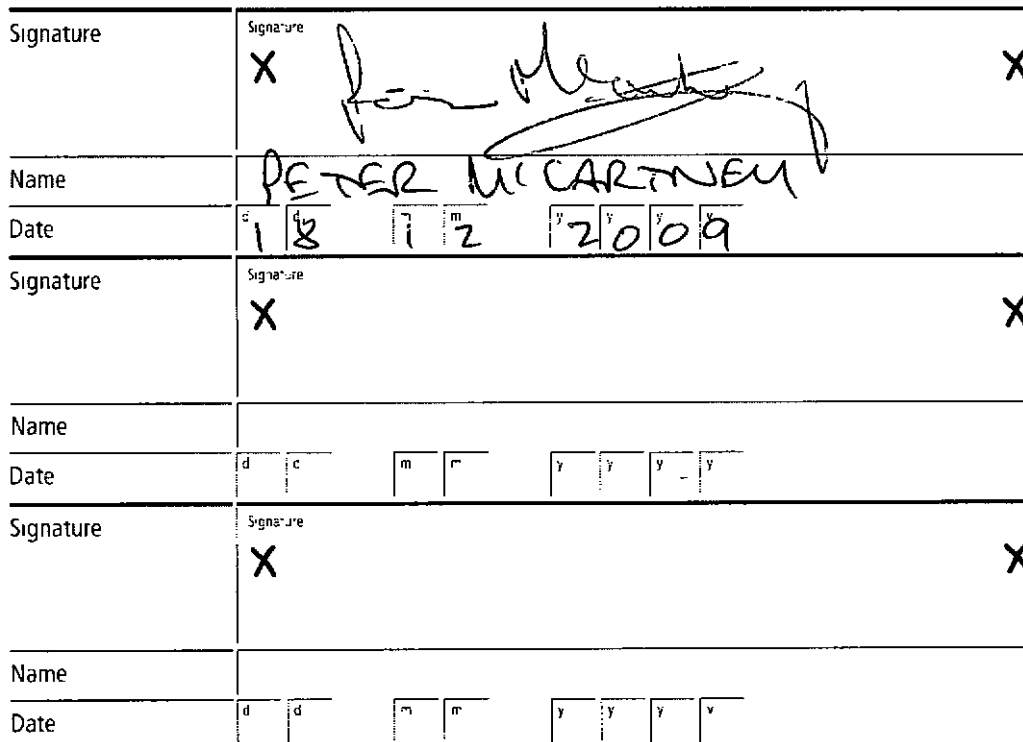 Signature Signature
X X
Name PETER MCCARTNEY
Date d d m m y y y y
18 12 2009
Signature Signature
X X
Name
Date d d m m y y y y
Signature Signature
X X
Name
Date d d m m y y y y